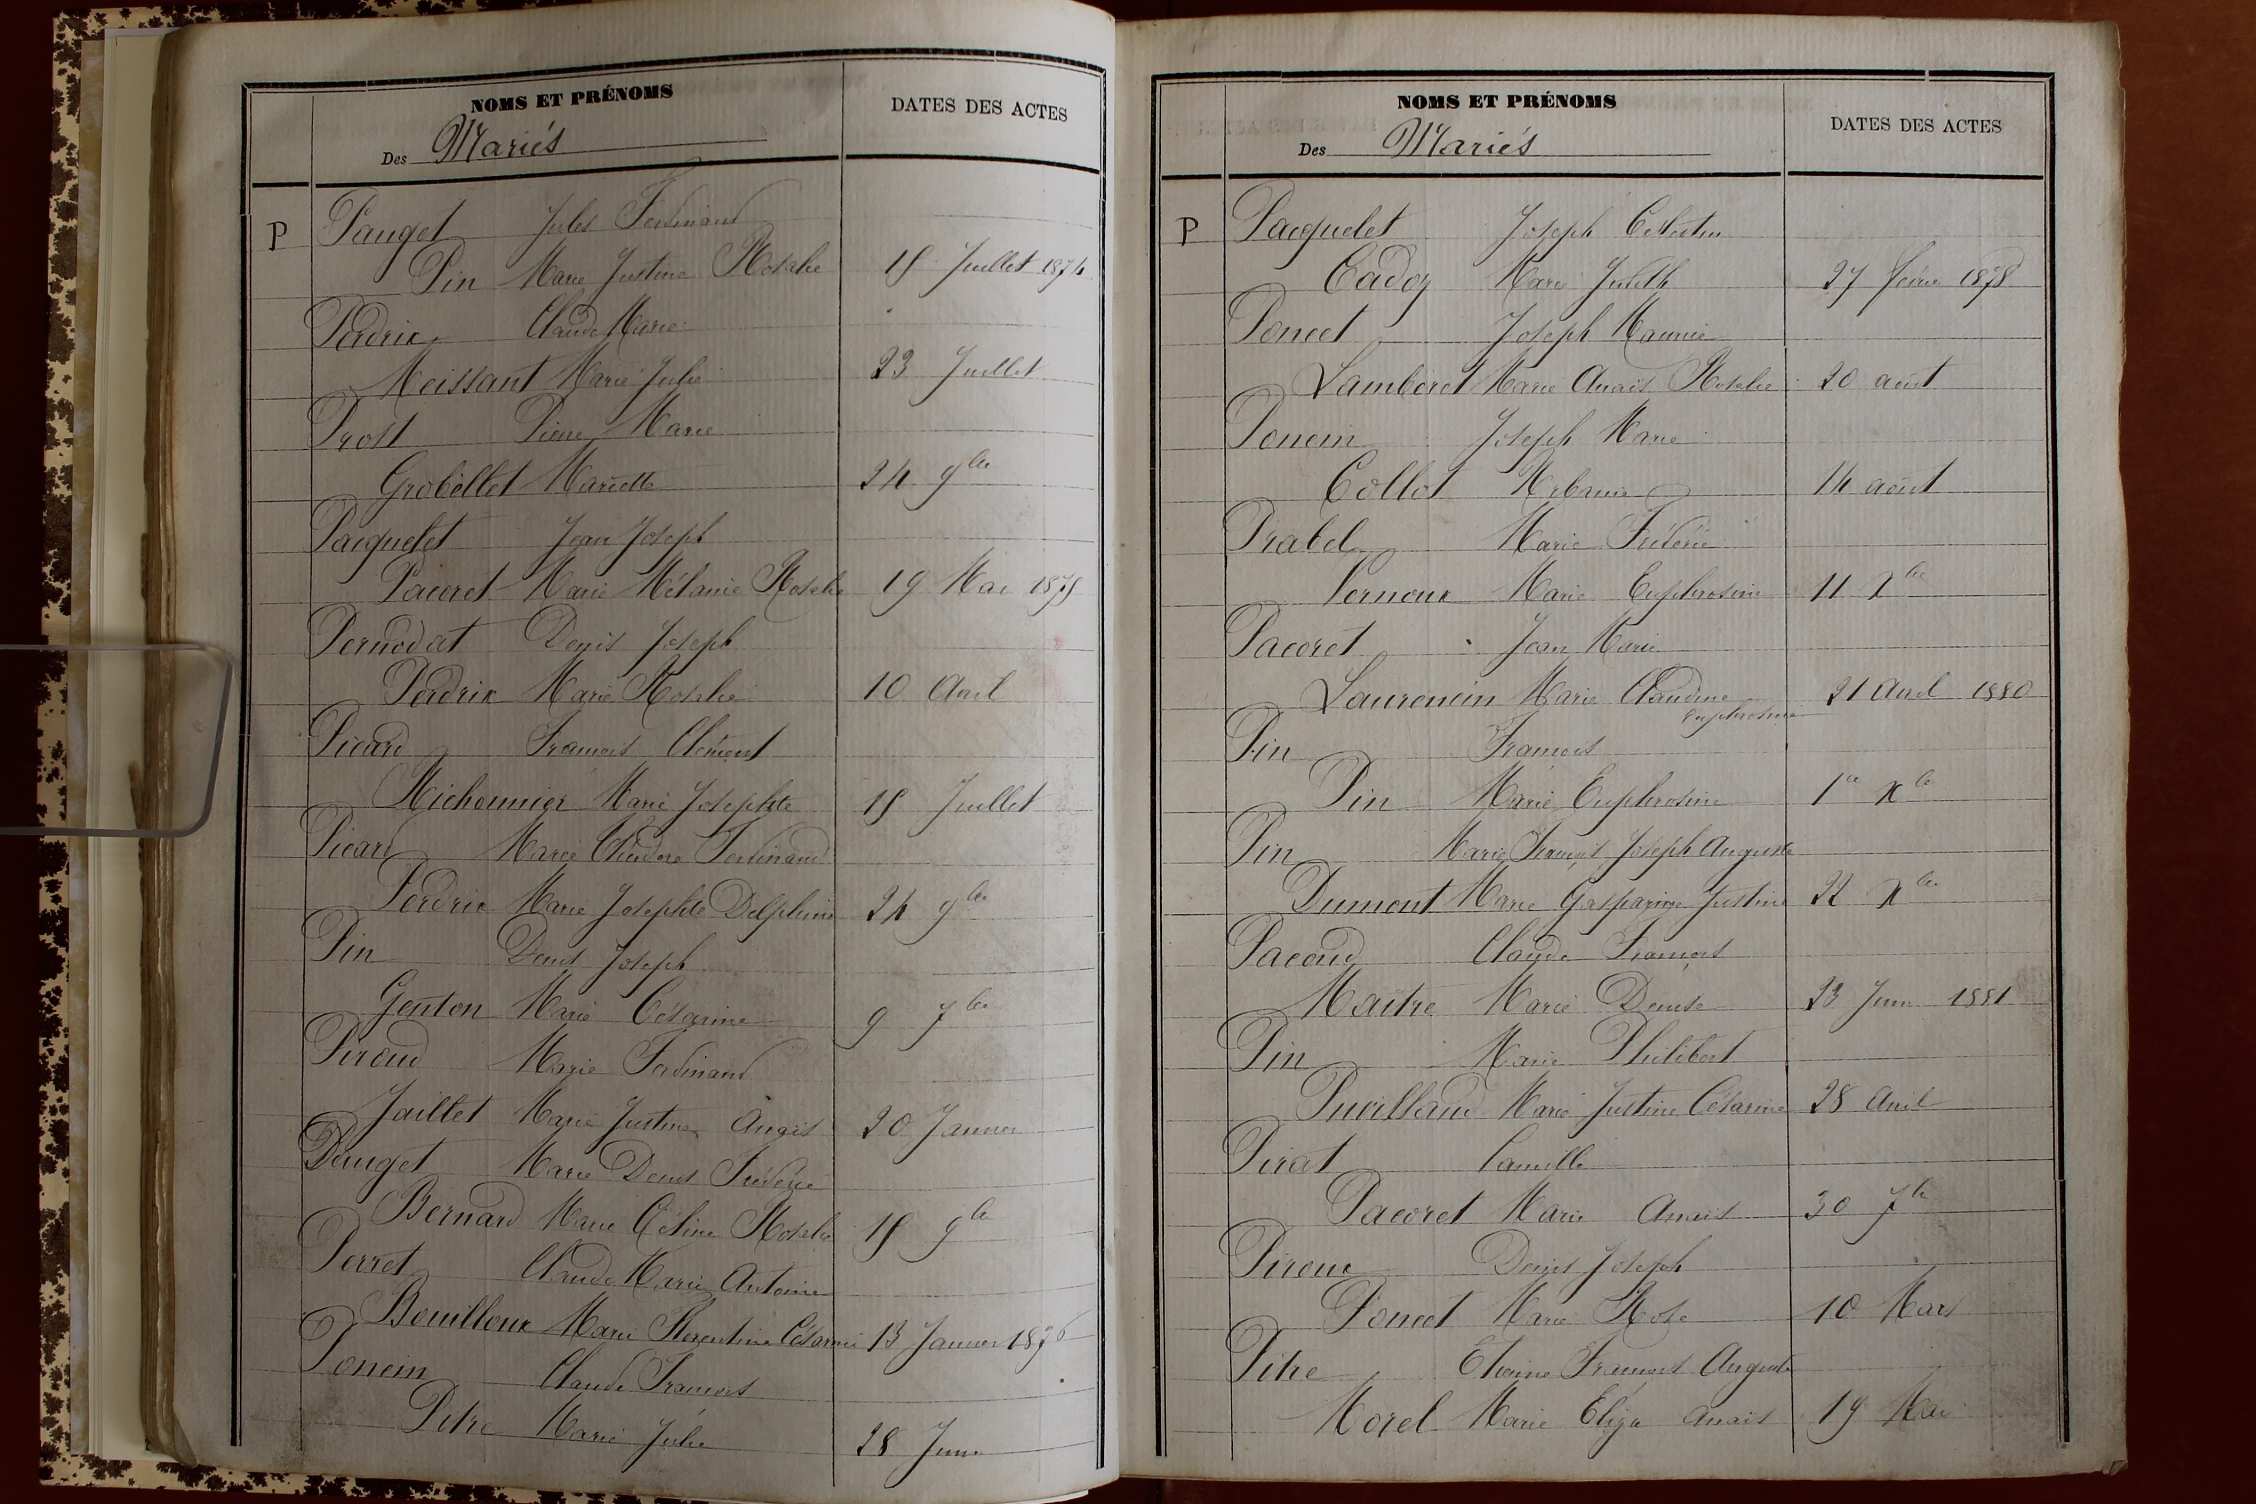 NOMS ET PRÉNOMS
DATES DES ACTES
Des Mariés
P Pauget Jules Ferdinand
Pin Marie Justine Rosalie 15 Juillet 1874
Perdrix Claude Marie
Moissant Marie Julie 23 Juillet
Prost Pierre Marie
Grobellet Mariette 24 9bre
Pacquelet Jean Joseph
Pacoret Marie Mélanie Rosalie 19 Mai 1875
Pernodat Denis Joseph
Perdrix Marie Rosalie 10 Avril
Picard François Clément
Michonnier Marie Josephte 15 Juillet
Picard Marie Théodore Ferdinand
Perdrix Marie Josephte Delphine 24 9bre
Pin Denis Joseph
Genton Marie Césarine 9 7bre
Piroud Marie Ferdinand
Jaillet Marie Justine Anaïs 20 Janvier
Pauget Marie Denis Frédéric
Bernard Marie Céline Rosalie 15 9bre
Perret Claude Marie Antoine
Bouilloux Marie Florentine Césarine 13 Janvier 1876
Poncin Claude François
Pitre Marie Julie 28 Juin
NOMS ET PRÉNOMS
DATES DES ACTES
Des Mariés
P Pacquelet Joseph Célestin
Cadoz Marie Judith 27 février 1878
Poncet Joseph Maurice
Lamberet Marie Anaïs Rosalie 20 août
Poncin Joseph Marie
Collot Mélanie 14 août
Prabel Marie Frédéric
Vernoux Marie Euphrosine 11 Xbre
Pacoret Jean Marie
Laurencin Marie Claudine 21 Avril 1880
Euphrosine
Pin François
Pin Marie Euphrosine 1er Xbre
Pin Marie François Joseph Auguste
Dumont Marie Gasparine Justine 22 Xbre
Pacoud Claude François
Maître Marie Denise 23 Juin 1881
Pin Marie Philibert
Puvilland Marie Justine Césarine 28 Avril
Pirat Camille
Pacoret Marie Anaïs 30 7bre
Piroux Denis Joseph
Poncet Marie Rose 10 Mars
Pitre Etienne François Auguste
Morel Marie Eliza Anaïs 19 Mai